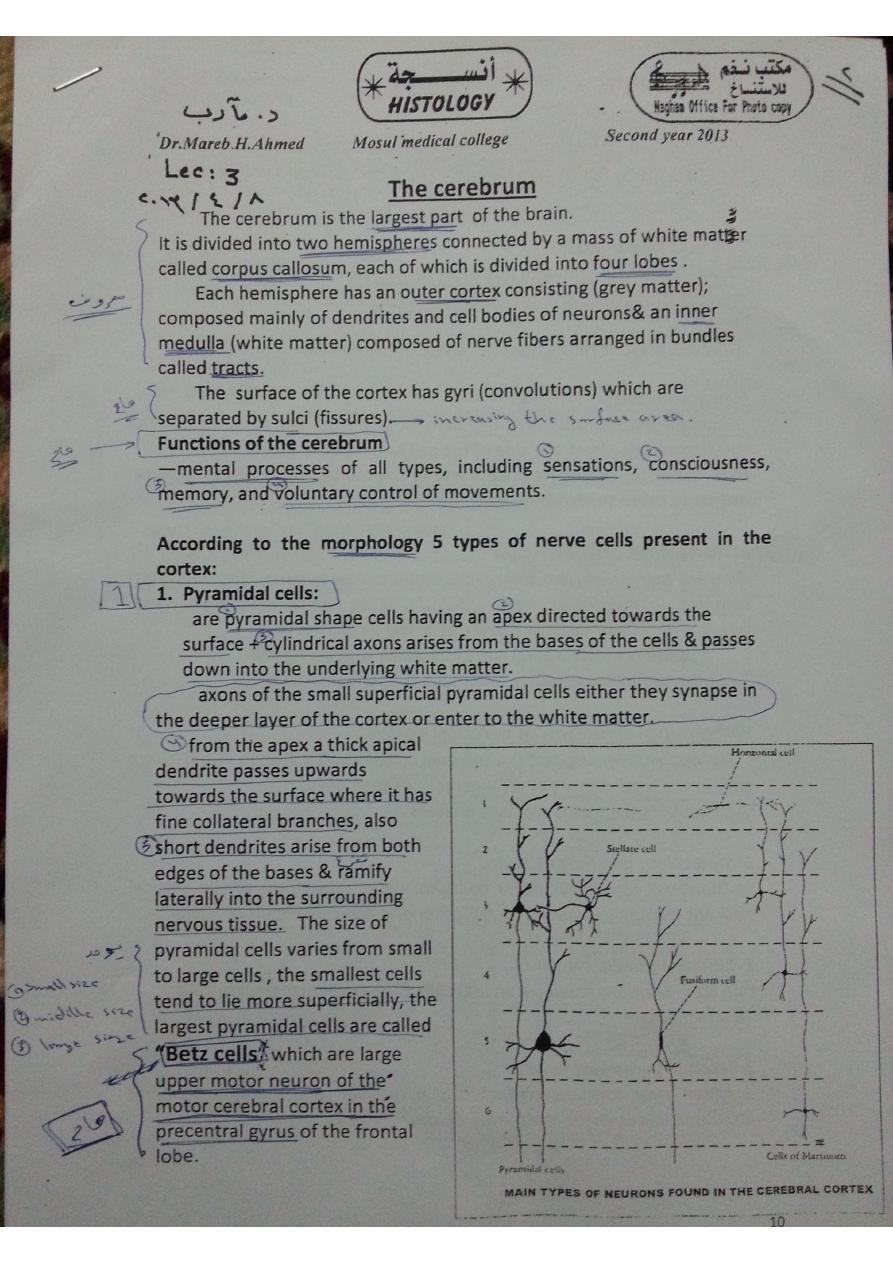 أنسجة
HISTOLOGY
مكتب نغم
للاستنساخ
Naghaa Office For Photo copy
د. مآرب
Dr.Mareb.H.Ahmed
Mosul medical college
Second year 2013
Lec: 3
٢٠١٣/٤/٨
The cerebrum
The cerebrum is the largest part of the brain.
It is divided into two hemispheres connected by a mass of white matter
called corpus callosum, each of which is divided into four lobes .
Each hemisphere has an outer cortex consisting (grey matter);
composed mainly of dendrites and cell bodies of neurons& an inner
medulla (white matter) composed of nerve fibers arranged in bundles
called tracts.
The surface of the cortex has gyri (convolutions) which are
separated by sulci (fissures). → increasing the surface area.
Functions of the cerebrum
—mental processes of all types, including sensations, consciousness,
memory, and voluntary control of movements.
According to the morphology 5 types of nerve cells present in the
cortex:
1 1. Pyramidal cells:
are pyramidal shape cells having an apex directed towards the
surface + cylindrical axons arises from the bases of the cells & passes
down into the underlying white matter.
axons of the small superficial pyramidal cells either they synapse in
the deeper layer of the cortex or enter to the white matter.
from the apex a thick apical
dendrite passes upwards
towards the surface where it has
fine collateral branches, also
short dendrites arise from both
edges of the bases & ramify
laterally into the surrounding
nervous tissue. The size of
pyramidal cells varies from small
to large cells , the smallest cells
tend to lie more superficially, the
largest pyramidal cells are called
"Betz cells" which are large
upper motor neuron of the
motor cerebral cortex in the
precentral gyrus of the frontal
lobe.
① small size
② middle size
③ large size
Horizontal cell
1
2
Stellate cell
3
4
Fusiform cell
5
6
Pyramidal cells
Cells of Martinotti
MAIN TYPES OF NEURONS FOUND IN THE CEREBRAL CORTEX
10